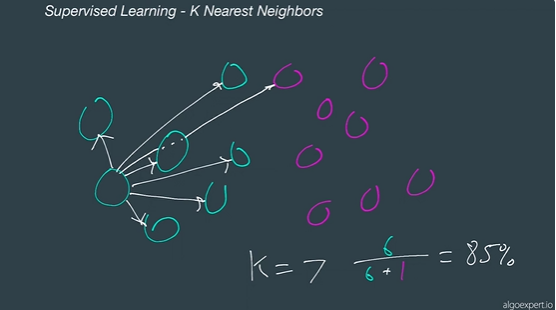 Supervised Learning - K Nearest Neighbors
K = 7 6 / 6 + 1 = 85%
algoexpert.io